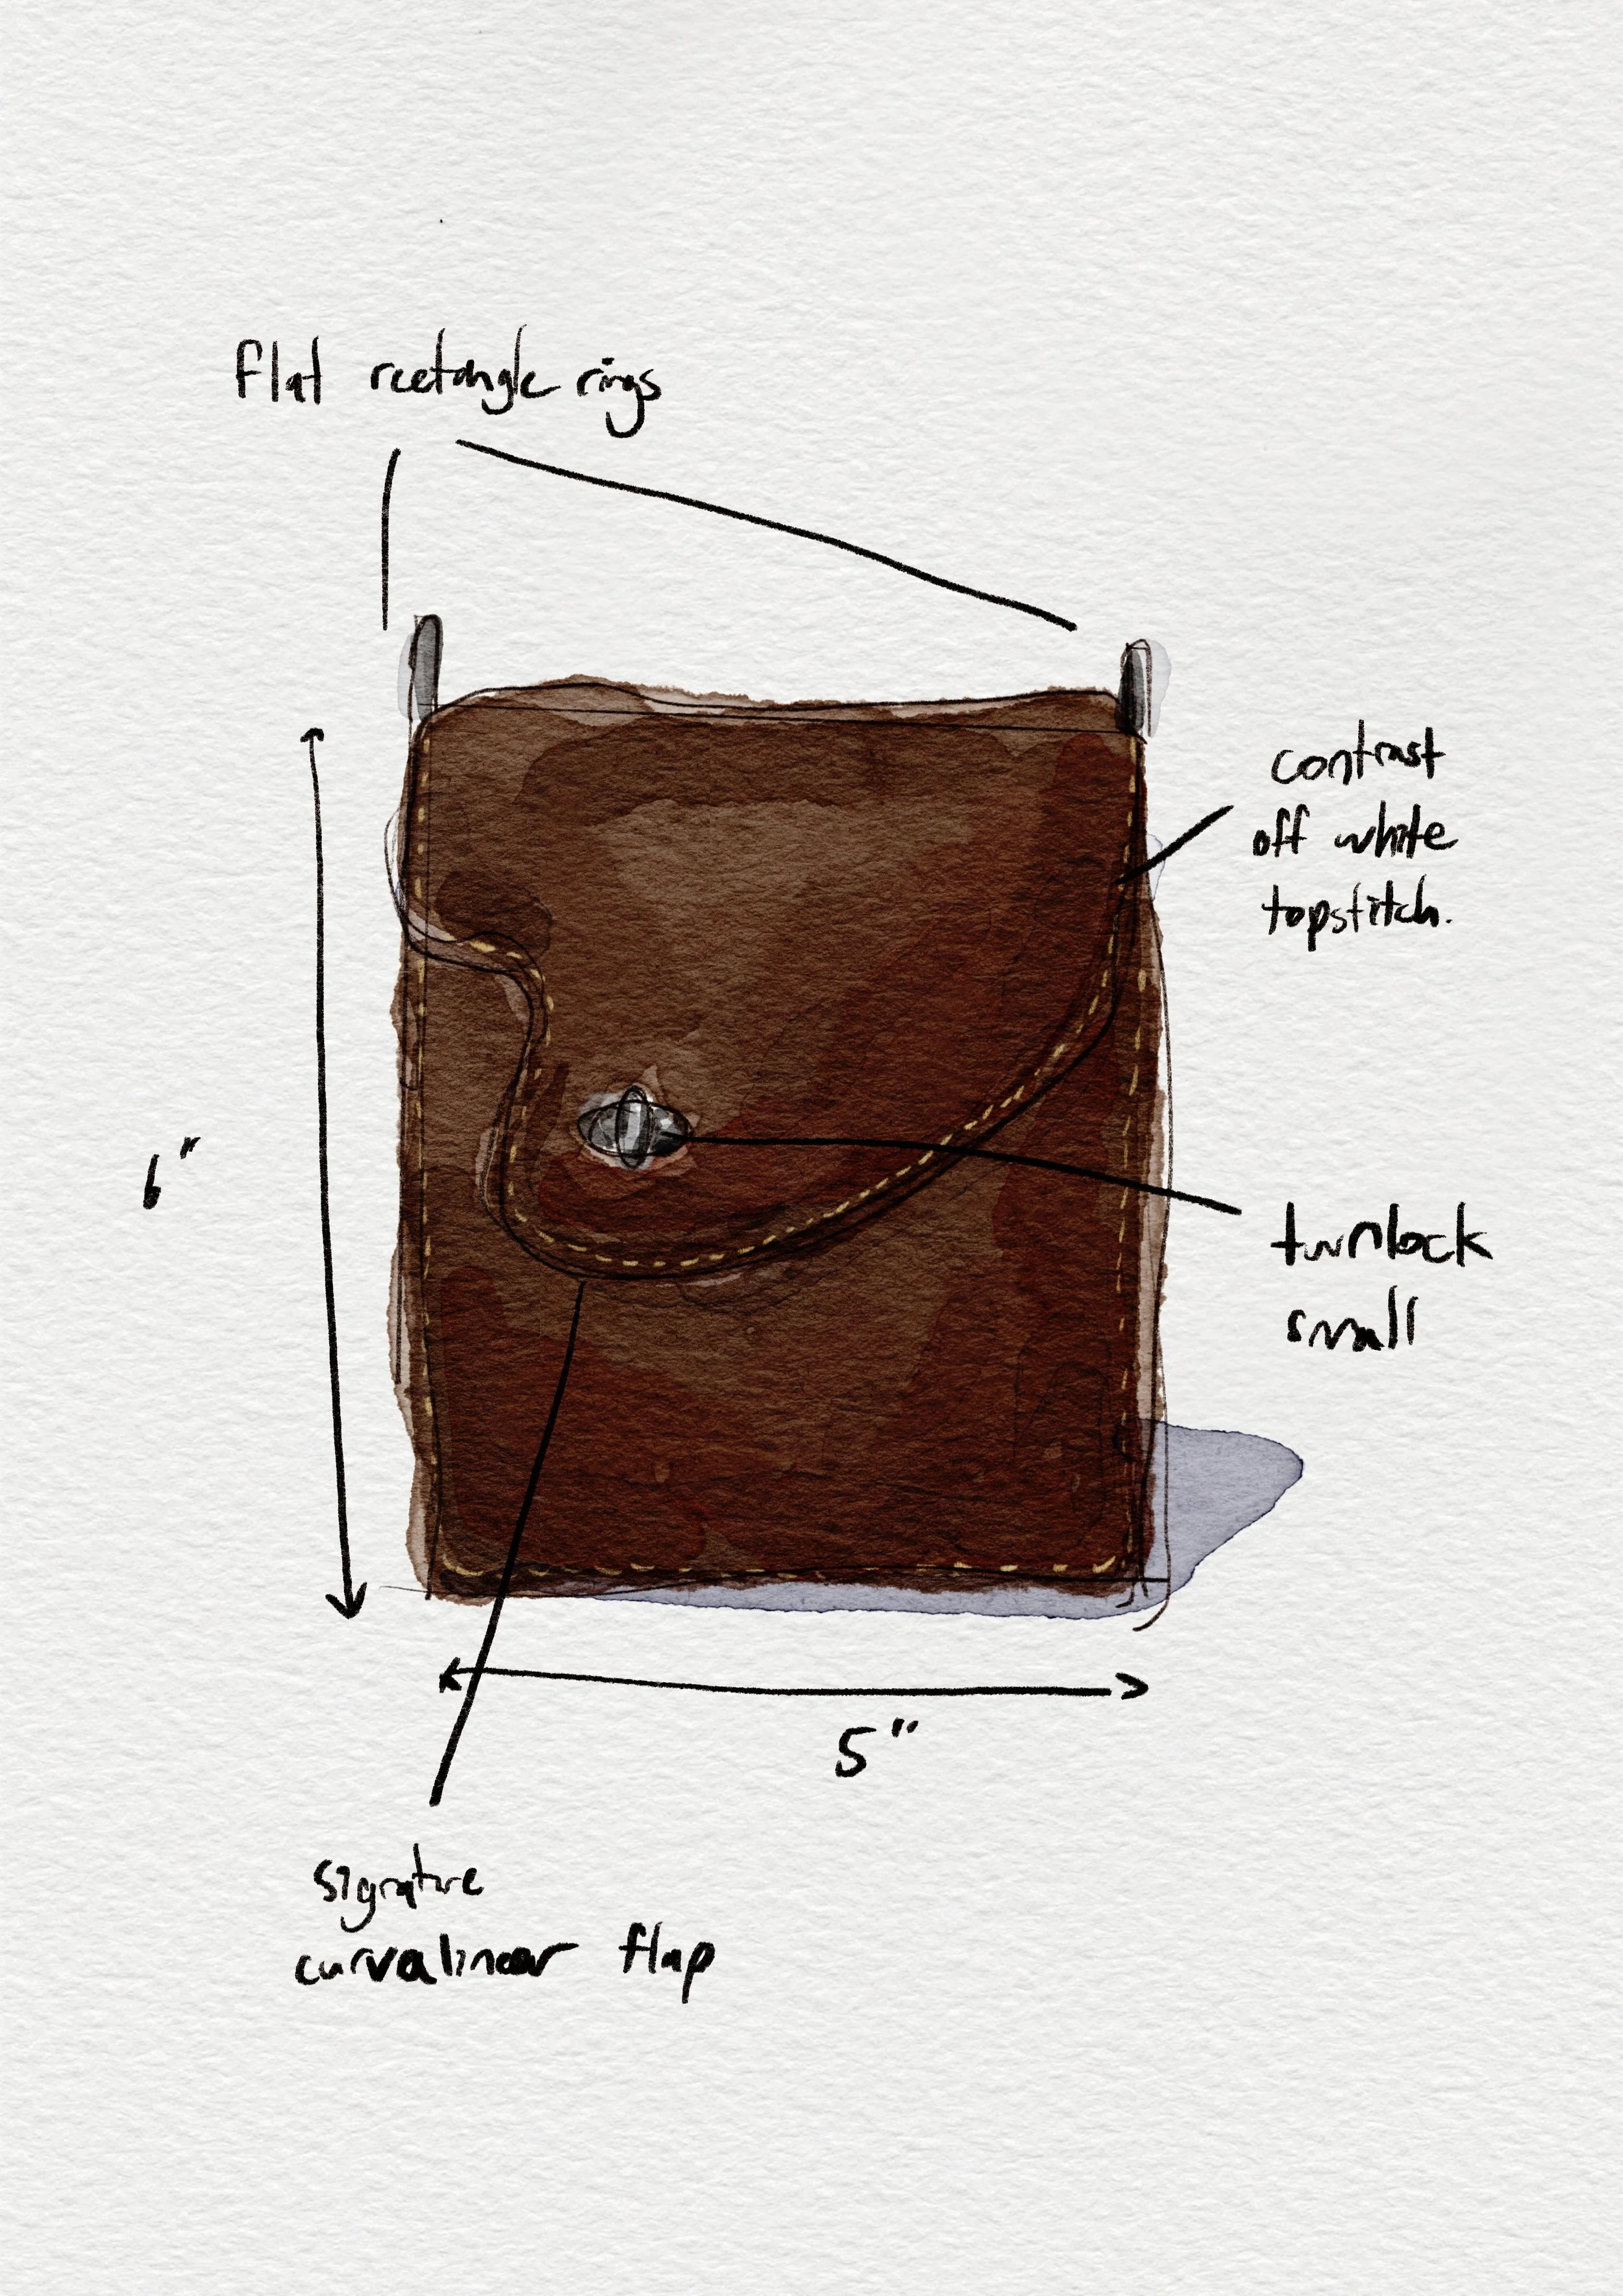 flat rectangle rings
contrast
off white
topstitch.
6"
turnlock
small
5"
signature
curvalinear flap